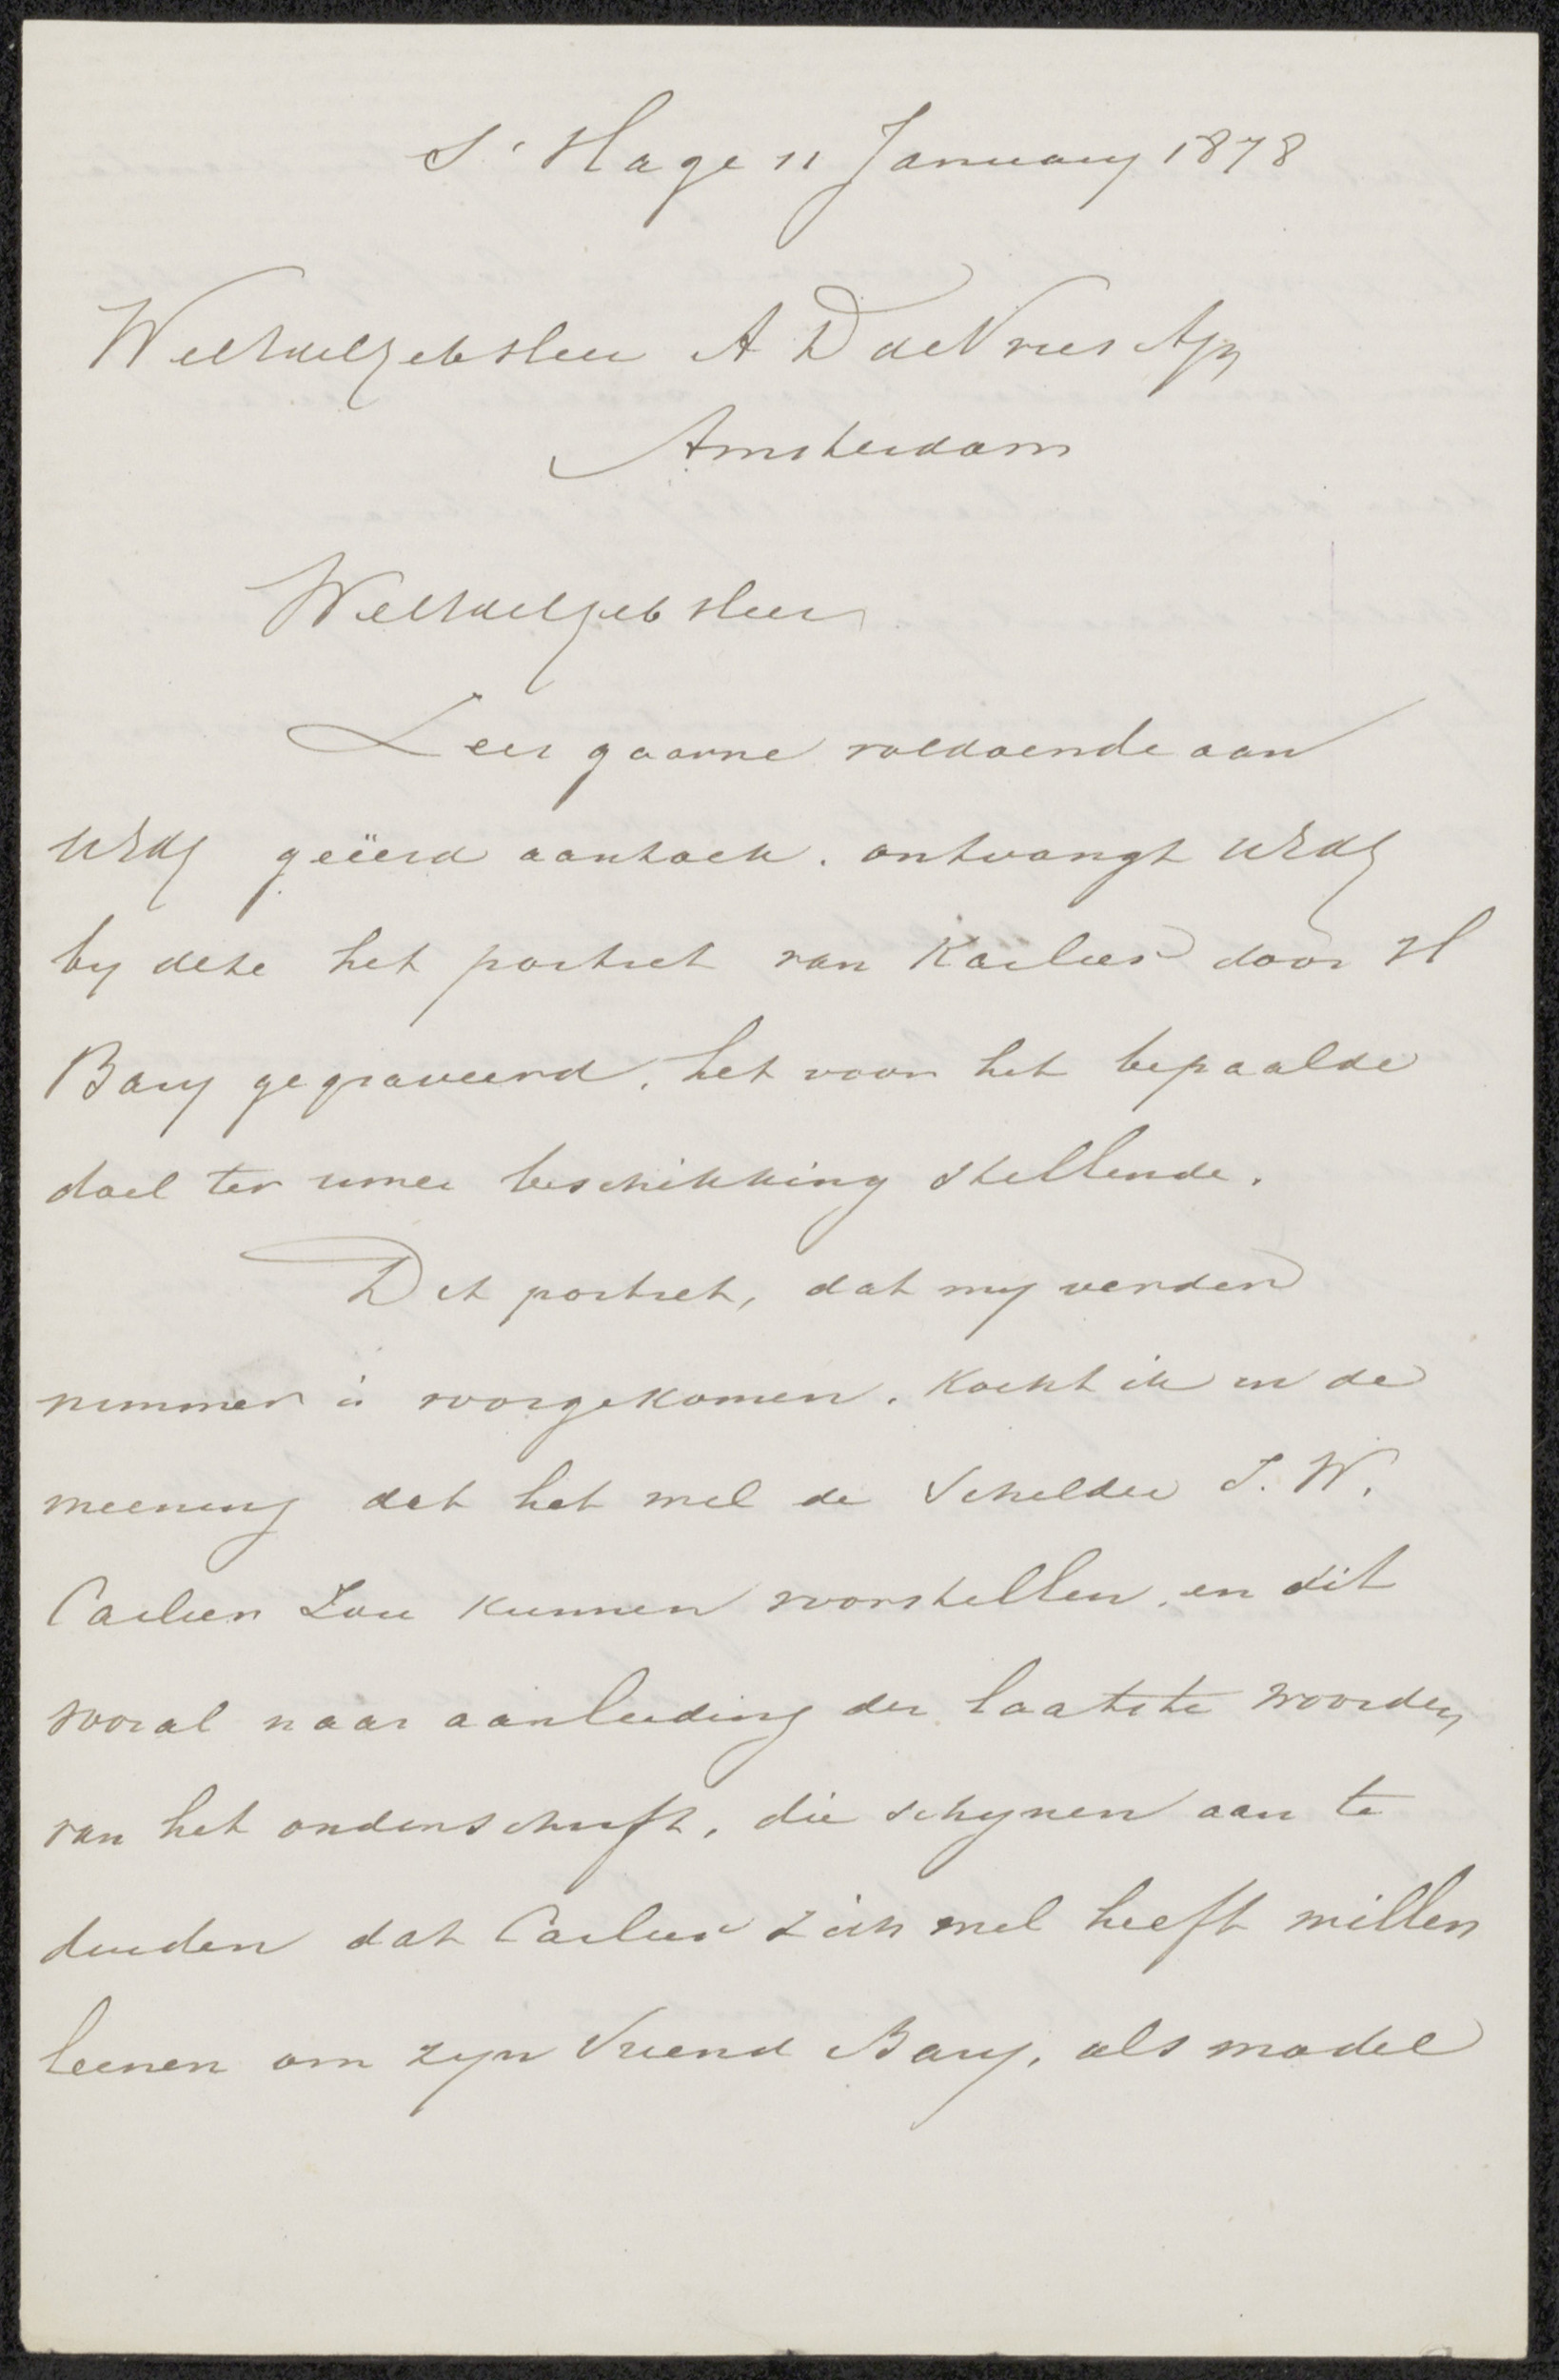 S' Hage 11 January 1878
WelEdelgeb Heer A D de Vries Azn
Amsterdam
WelEdelgeb Heer
Zeer gaarne voldoende aan
UEdg geëerd aanzoek. ontvangt UEdg
by deze het portret van Karlier door H
Bary gegraveerd, het voor het bepaalde
doel ter uwer beschikking stellende.
Dit portret, dat my verder
nimmer is voorgekomen, kocht ik in de
meening dat het wel de Schilder J. W.
Carlier zou kunnen voorstellen, en dit
vooral naar aanleiding der laatste woorden
van het onderschrift, die schynen aan te
duiden dat Carlier zich wel heeft willen
leenen om zyn Vriend Bary, als model